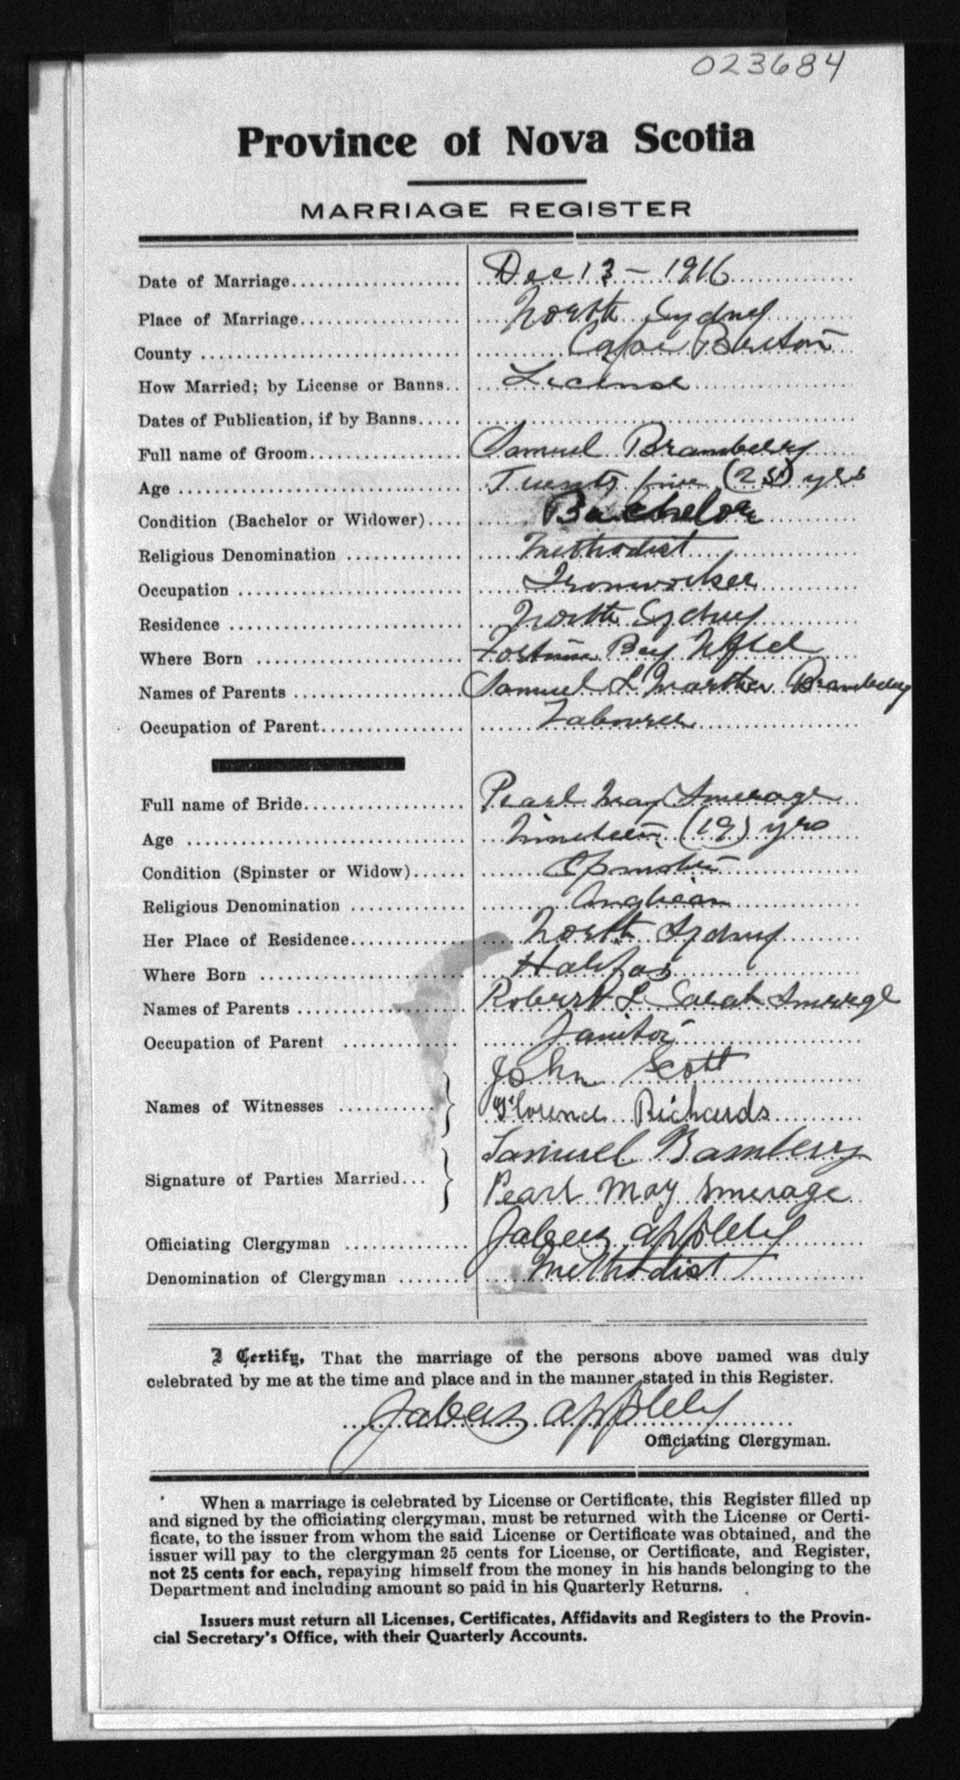 023684
Province of Nova Scotia
MARRIAGE REGISTER
Date of Marriage Dec 13 - 1916
Place of Marriage North Sydney
County Cape Breton
How Married; by License or Banns License
Dates of Publication, if by Banns
Full name of Groom Samuel Brambery
Age Twenty five (25) yrs
Condition (Bachelor or Widower) Bachelor
Religious Denomination Methodist
Occupation Ironworker
Residence North Sydney
Where Born Fortune Bay Nfld
Names of Parents Samuel & Martha Brambery
Occupation of Parent Labourer
Full name of Bride Pearl May Smerage
Age Nineteen (19) yrs
Condition (Spinster or Widow) Spinster
Religious Denomination Anglican
Her Place of Residence North Sydney
Where Born Halifax
Names of Parents Robert & Sarah Smerage
Occupation of Parent Janitor
John Scott
Names of Witnesses Florence Richards
Samuel Bambery
Signature of Parties Married Pearl May Smerage
Officiating Clergyman Jabez Appleby
Denomination of Clergyman Methodist
I Certify, That the marriage of the persons above named was duly
celebrated by me at the time and place and in the manner stated in this Register.
Jabez Appleby
Officiating Clergyman.
When a marriage is celebrated by License or Certificate, this Register filled up
and signed by the officiating clergyman, must be returned with the License or Certi-
ficate, to the issuer from whom the said License or Certificate was obtained, and the
issuer will pay to the clergyman 25 cents for License, or Certificate, and Register,
not 25 cents for each, repaying himself from the money in his hands belonging to the
Department and including amount so paid in his Quarterly Returns.
Issuers must return all Licenses, Certificates, Affidavits and Registers to the Provin-
cial Secretary's Office, with their Quarterly Accounts.